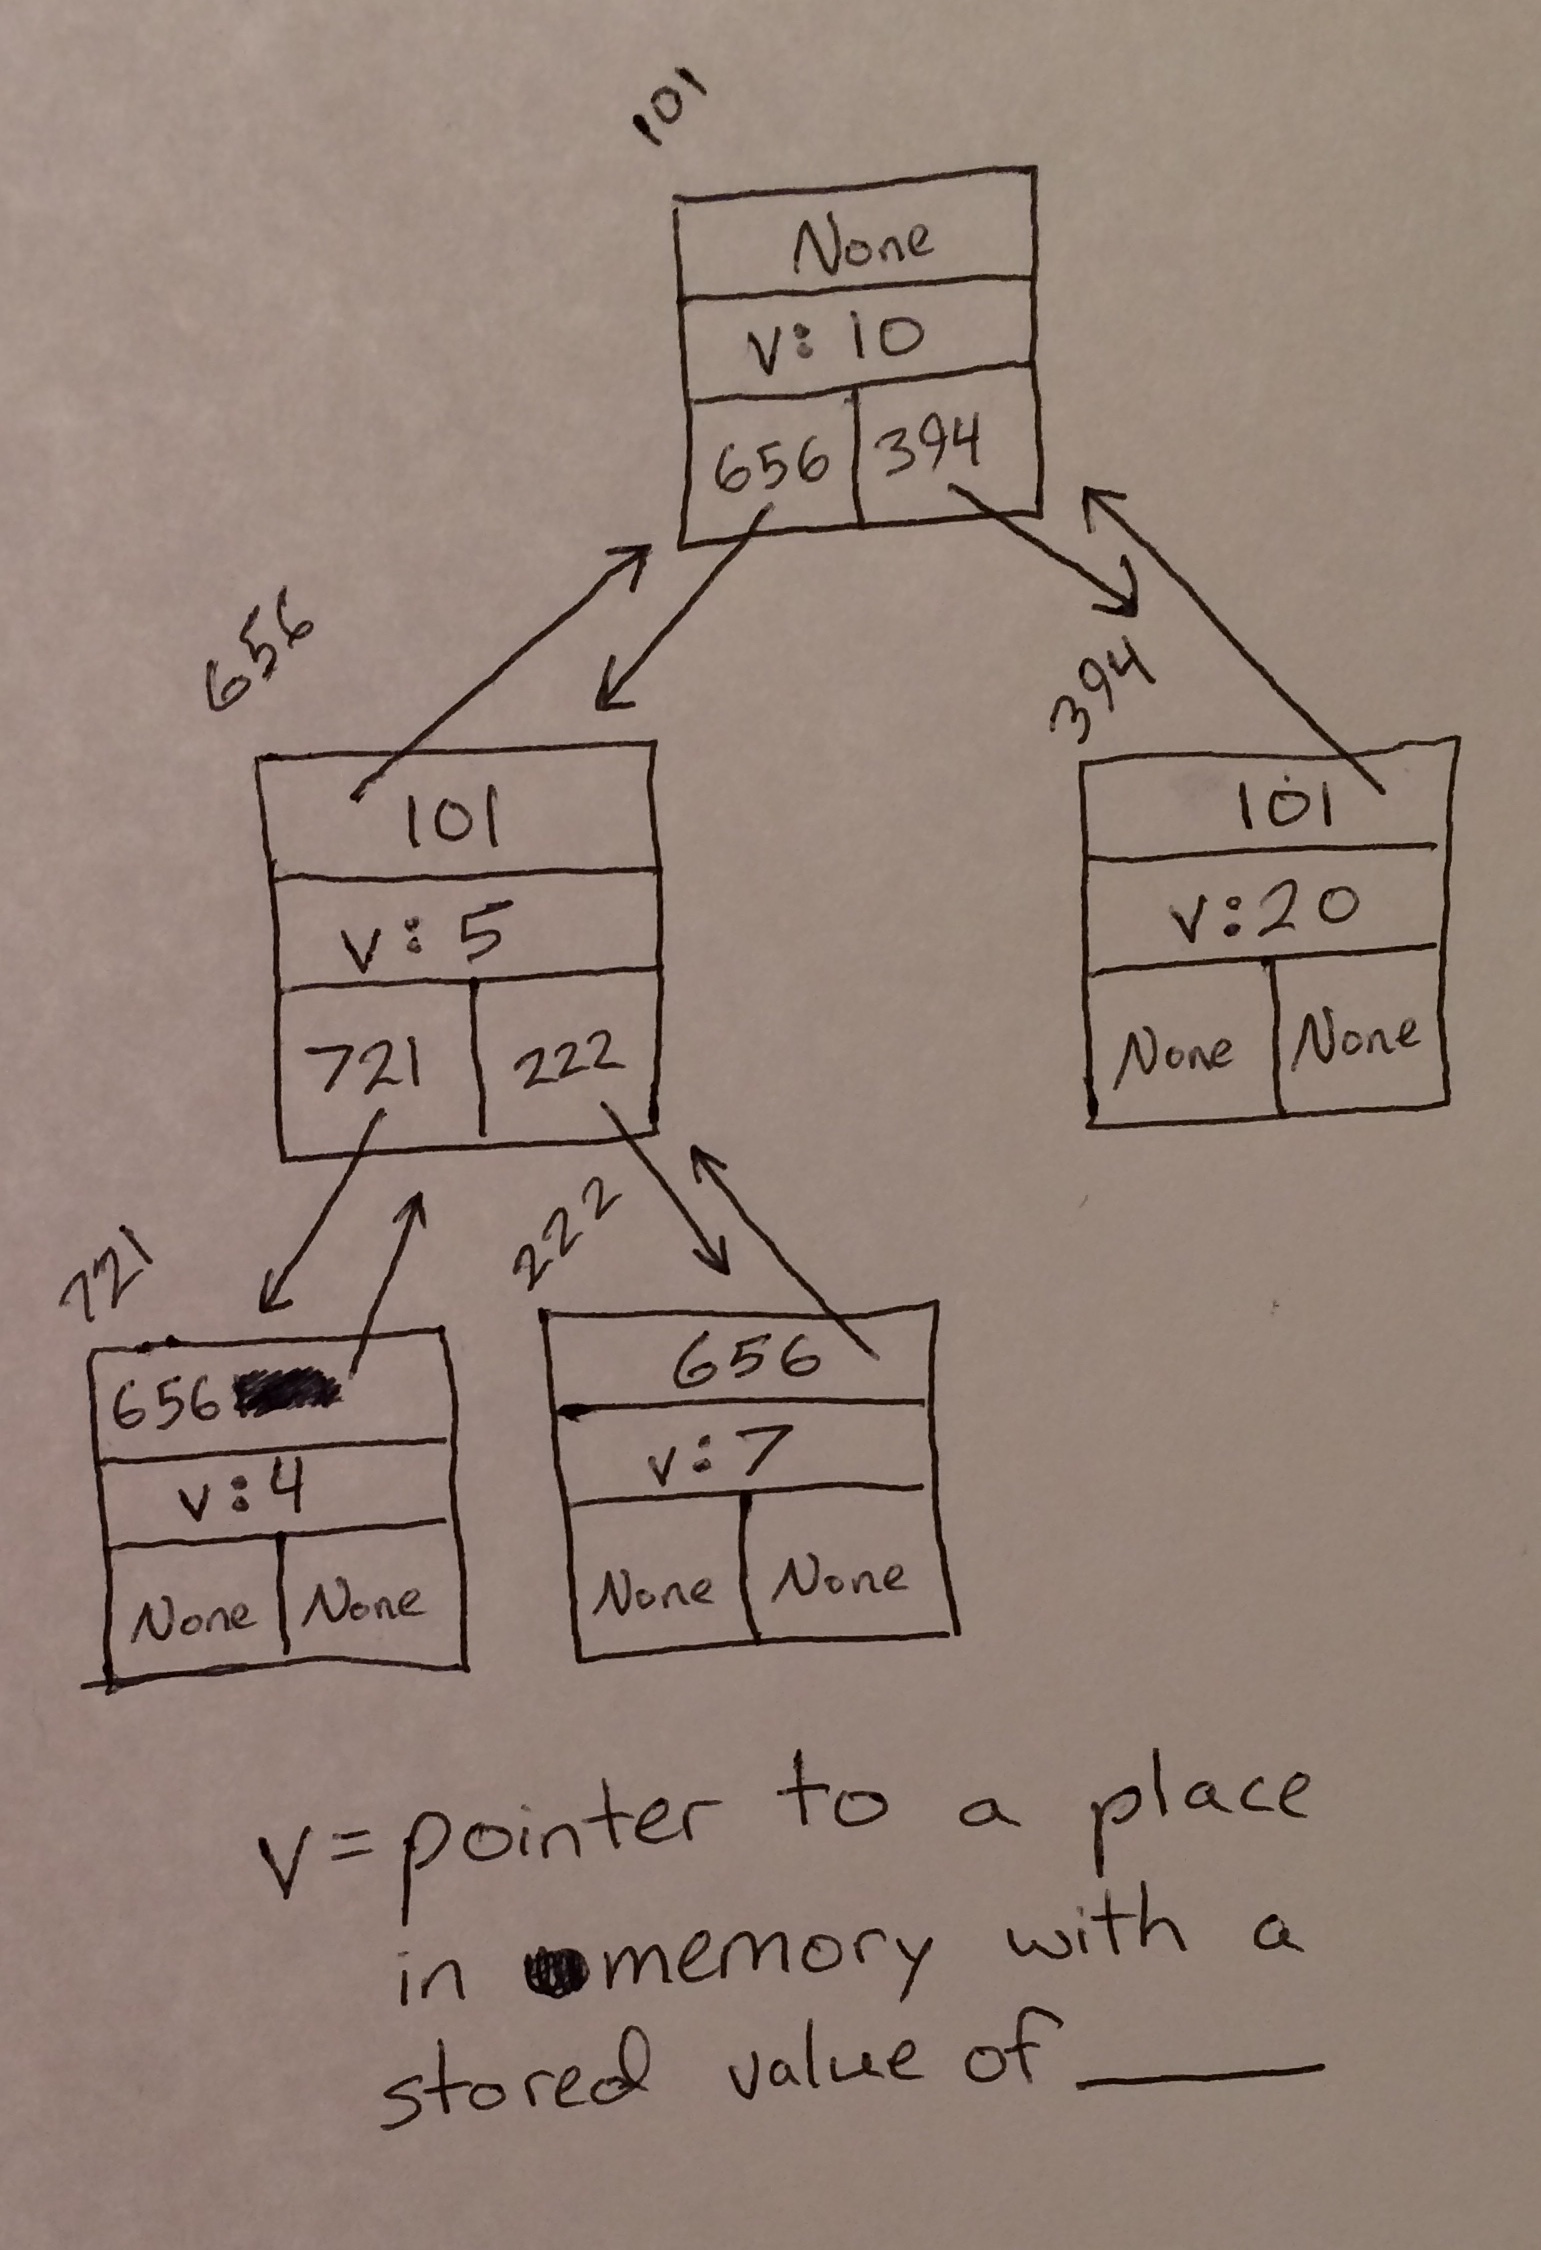 101
None
v: 10
656 394
656
394
101
v: 5
721 222
101
v:20
None None
721
222
656
v:4
None None
656
v:7
None None
v=pointer to a place
in memory with a
stored value of ____